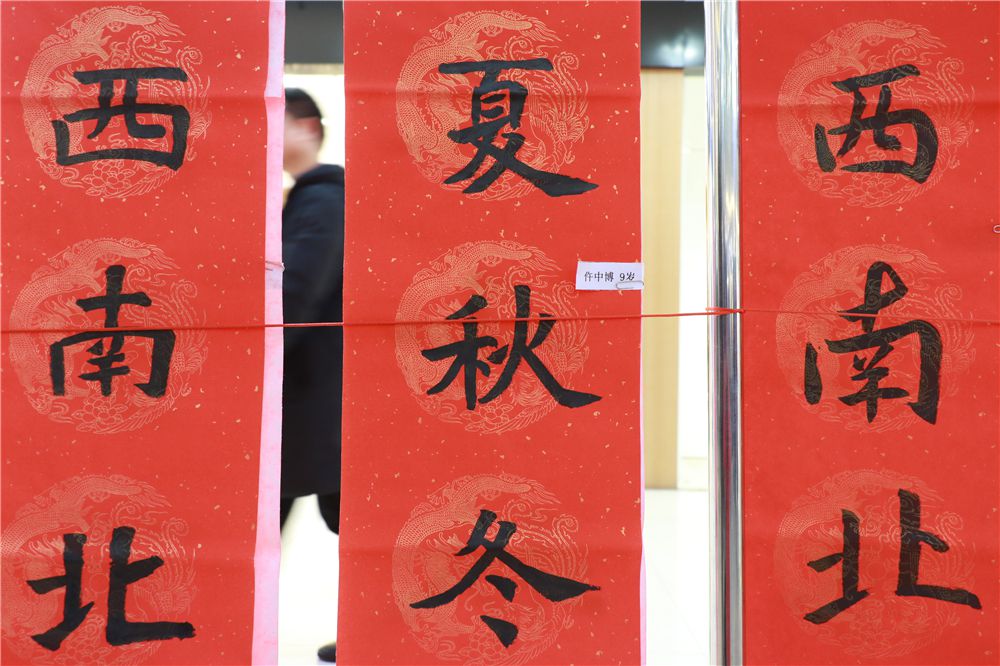 西
南
北
夏
秋
冬
仵中博 9岁
西
南
北